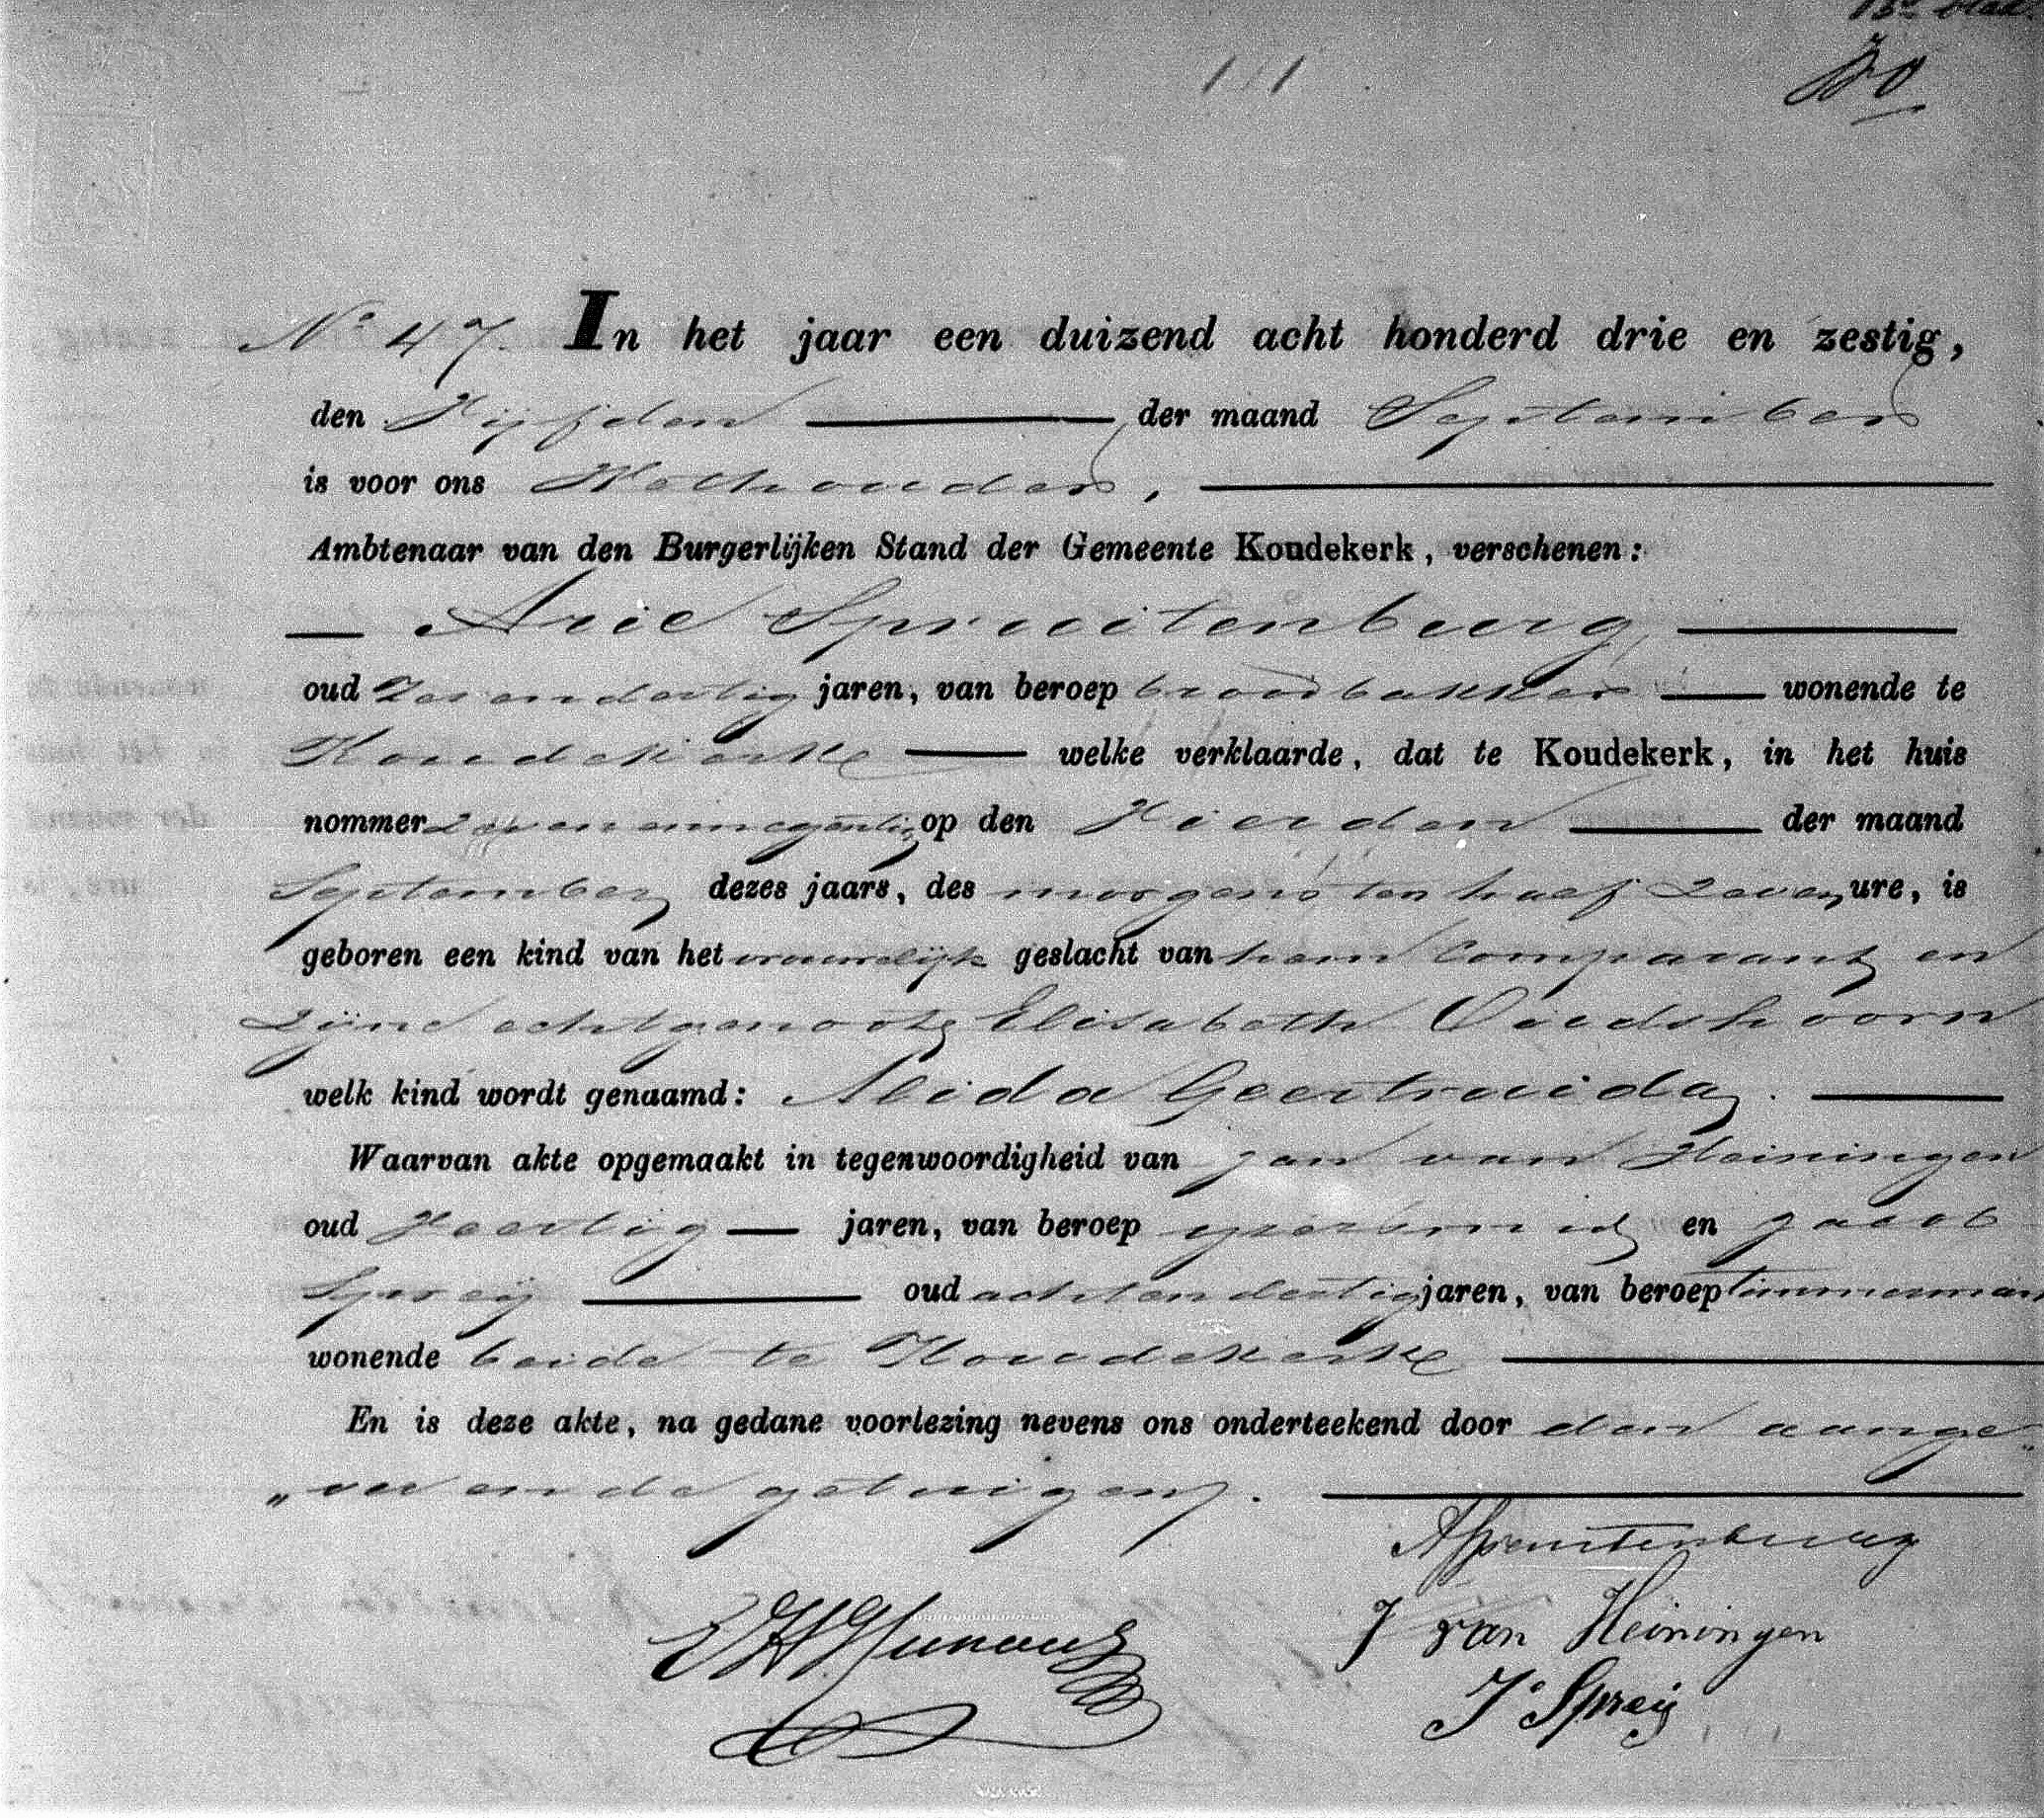 111
No 47. In het jaar een duizend acht honderd drie en zestig,
den Vijfden der maand September
is voor ons Wethouder,
Ambtenaar van den Burgerlijken Stand der Gemeente Koudekerk, verschenen:
Arie Spruitenburg
oud Zesendertig jaren, van beroep broodbakker wonende te
Koudekerke welke verklaarde, dat te Koudekerk, in het huis
nommer op den Vierden der maand
September dezes jaars, des morgens ten half Zeven ure, is
geboren een kind van het vrouwelijk geslacht van hem Comparant en
Zijne echtgenoote Elisabeth Oudshoorn
welk kind wordt genaamd: Alida Geertruida.
Waarvan akte opgemaakt in tegenwoordigheid van Jan van Heiningen
oud Veertig jaren, van beroep en Jacob
Spreij oud achtendertig jaren, van beroep timmerman
wonende beide te Koudekerke
En is deze akte, na gedane voorlezing nevens ons onderteekend door den aange„
„ver en de getuigen.
ASpruitenburg
J van Heiningen
J. Spreij